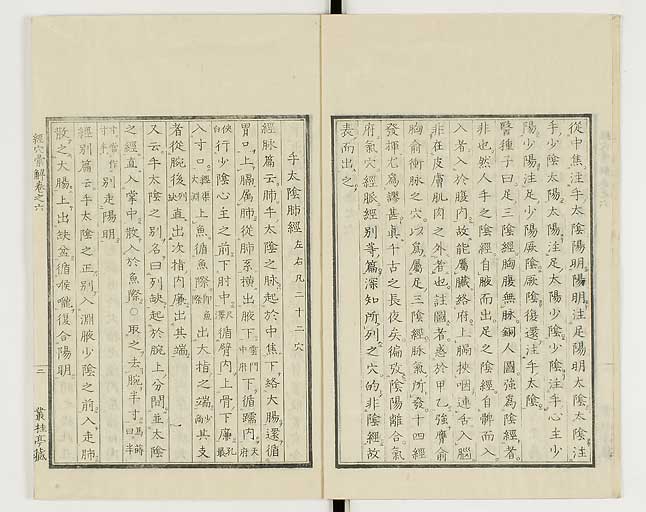 從中焦注手太陰陽明陽明注足陽明太陰太陰注
手少陰太陽太陽注足太陽少陰少陰注手心主少
陽少陽注足少陽厥陰厥陰復還注手太陰
醫種子曰足三陰經胸腹無脉銅人圖強為陰經者
非也然人手之陰經自腋而出足之陰經自髀而入
入者入於腹内故能屬臟絡府上膈挾咽連舌入腦
非在皮膚肌肉之外者也註圖者惹於甲乙強膺俞
胸俞衝脉之穴以為屬足三陰經脉氣所發十四經
發揮尤為謬甚眞千古之長夜矣徧攷陰陽離合氣
府氣穴經脈經別等篇深知所列之穴的非陰經故
表而出之
手太陰肺經 左右凡二十二穴
經脉篇云肺手太陰之脉起於中焦下絡大腸還循
胃口上膈属肺從肺系橫出腋下 雲門中府 下循臑内 天府
俠白 行少陰心主之前下肘中 尺澤 循臂内上骨下廉 孔最
入寸口 經渠太淵 上魚循魚際 魚際 出大指之端 少商 其支
者從腕後 列缺 直出次指内廉出其端
又云手太陰之別名曰列缺起於腕上分間並太陰
之經直入掌中散入於魚際○取之去腕半寸 馬蒔曰半
寸當作寸半 別走陽明
經別篇云手太陰之正別入淵腋少陰之前入走肺
散之大腸上出缺盆循喉嚨復合陽明
經穴彙解卷之六
二
叢桂亭藏